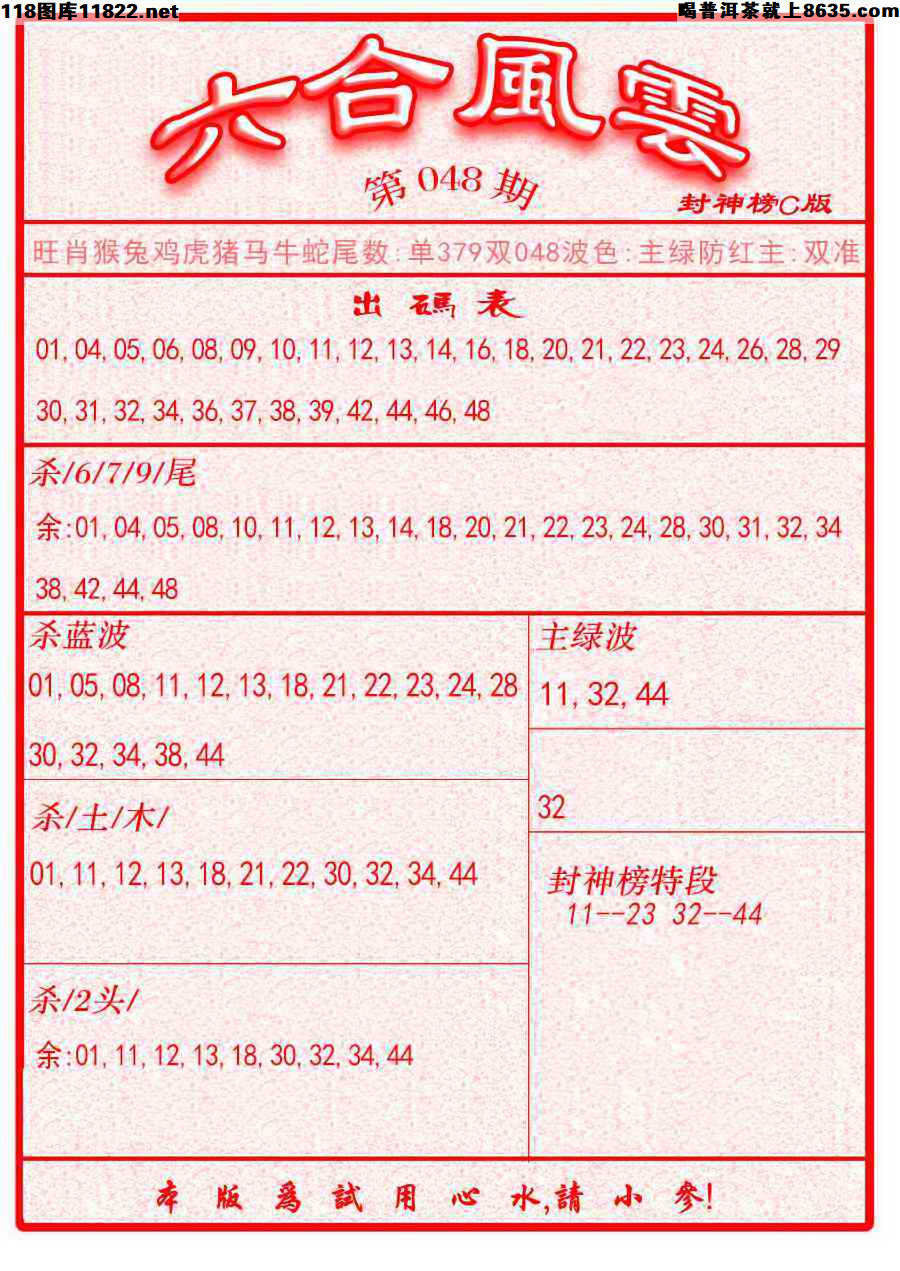 118图库11822.net
喝普洱茶就上8635.com
六合風雲
第048期
封神榜C版
旺肖猴兔鸡虎猪马牛蛇尾数:单379双048波色:主绿防红主:双准
出碼表
01,04,05,06,08,09,10,11,12,13,14,16,18,20,21,22,23,24,26,28,29
30,31,32,34,36,37,38,39,42,44,46,48
杀/6/7/9/尾
余:01,04,05,08,10,11,12,13,14,18,20,21,22,23,24,28,30,31,32,34
38,42,44,48
杀蓝波
01,05,08,11,12,13,18,21,22,23,24,28
30,32,34,38,44
杀/土/木/
01,11,12,13,18,21,22,30,32,34,44
杀/2头/
余:01,11,12,13,18,30,32,34,44
主绿波
11,32,44
32
封神榜特段
11--23 32--44
本版爲試用心水,請小參!